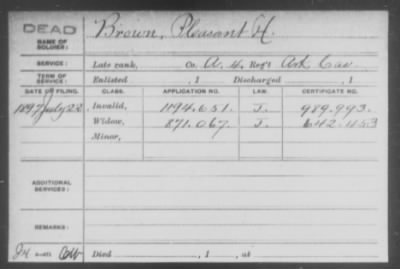 DEAD
NAME OF SOLDIER: Brown, Pleasant H.
SERVICE: Late rank, Co. A. 4, Reg't Ark Cav
TERM OF SERVICE: Enlisted , 1 Discharged , 1
DATE OF FILING. CLASS. APPLICATION NO. LAW. CERTIFICATE NO.
1897 July 22, Invalid, 1194.651. J. 989.993.
Widow, 871.067. J. 642.453
Minor,
ADDITIONAL SERVICES:
REMARKS:
Died , 1 , at